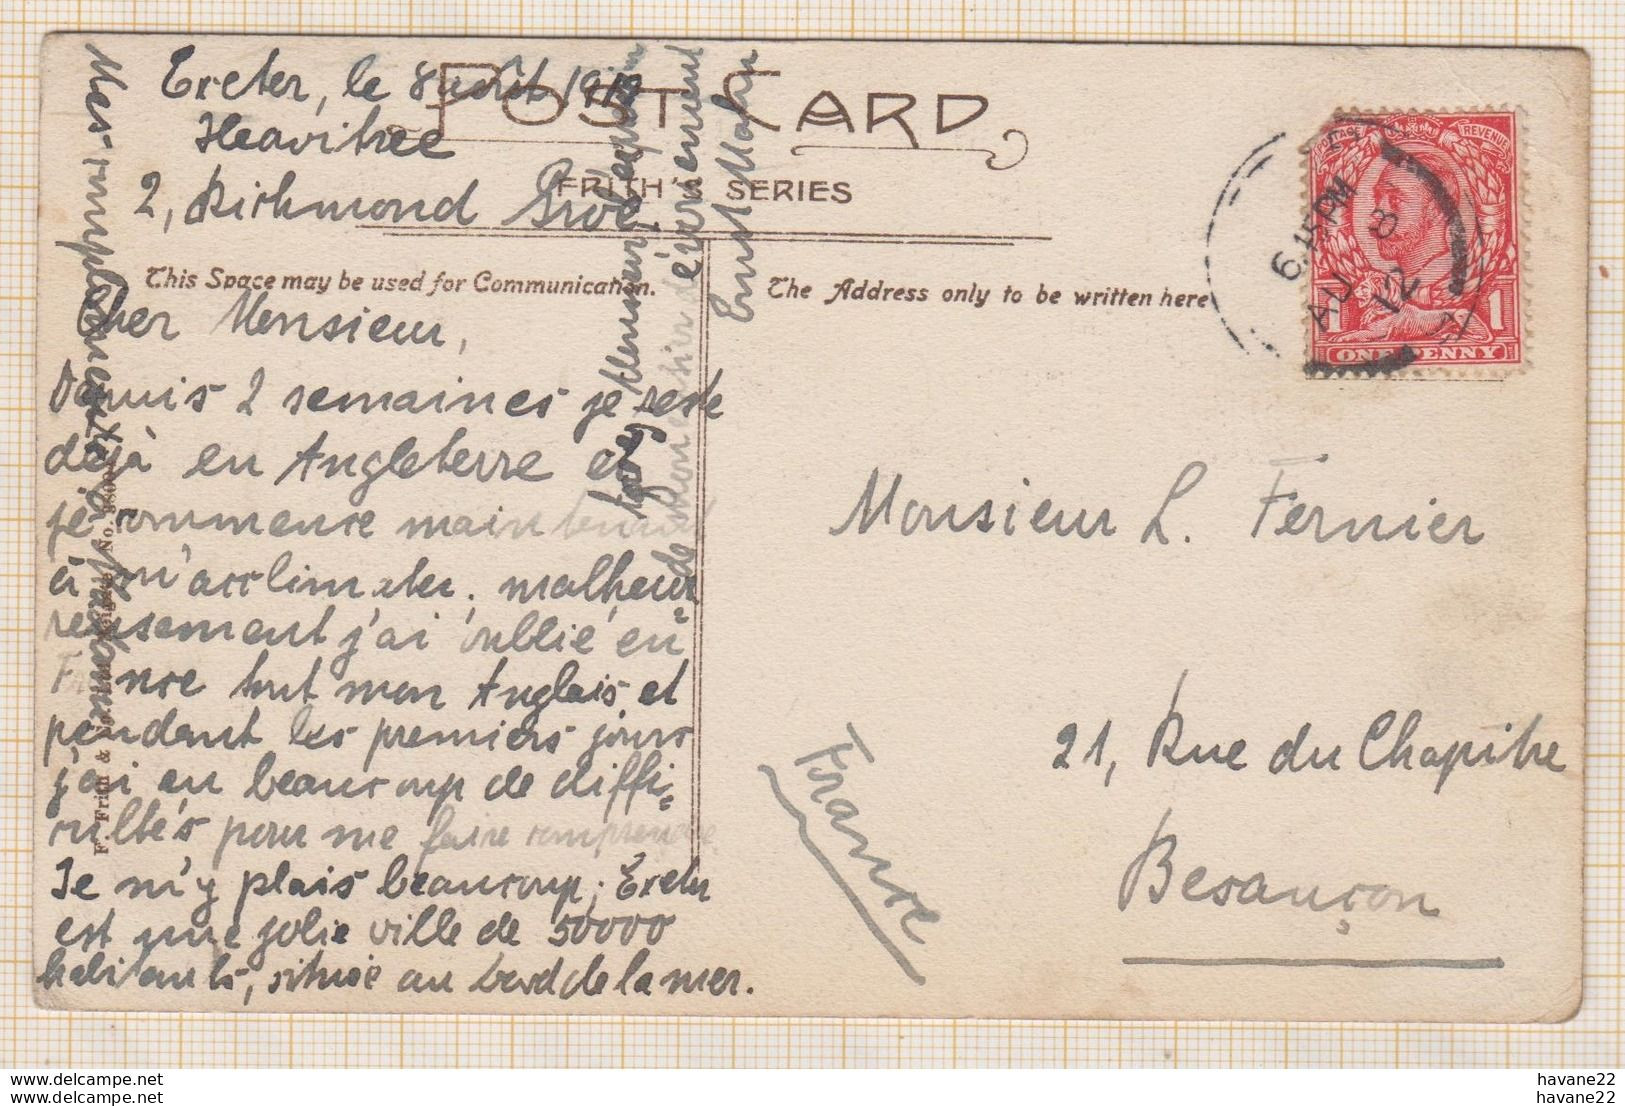 POST CARD
FRITH'S SERIES
This Space may be used for Communication.
The Address only to be written here
Exeter, le 8 août 1912
Heavitree
2, Richmond Grove
Cher Monsieur,
Depuis 2 semaines je reste
déjà en Angleterre et
je commence maintenant
à m'acclimater, malheu-
reusement j'ai oublié en
France tout mon Anglais et
pendant les premiers jours
j'ai eu beaucoup de diffi-
cultés pour me faire comprendre
Je m'y plais beaucoup; Exeter
est une jolie ville de 50000
habitants, située au bord de la mer.
Mes remplacements
Monsieur
Ernst Mahn
6.15 PM
AU 8
12
POSTAGE REVENUE
1 1
ONE PENNY
Monsieur L. Fernier
21, Rue du Chapitre
Besançon
France
havane22 havane22
havane22 havane22